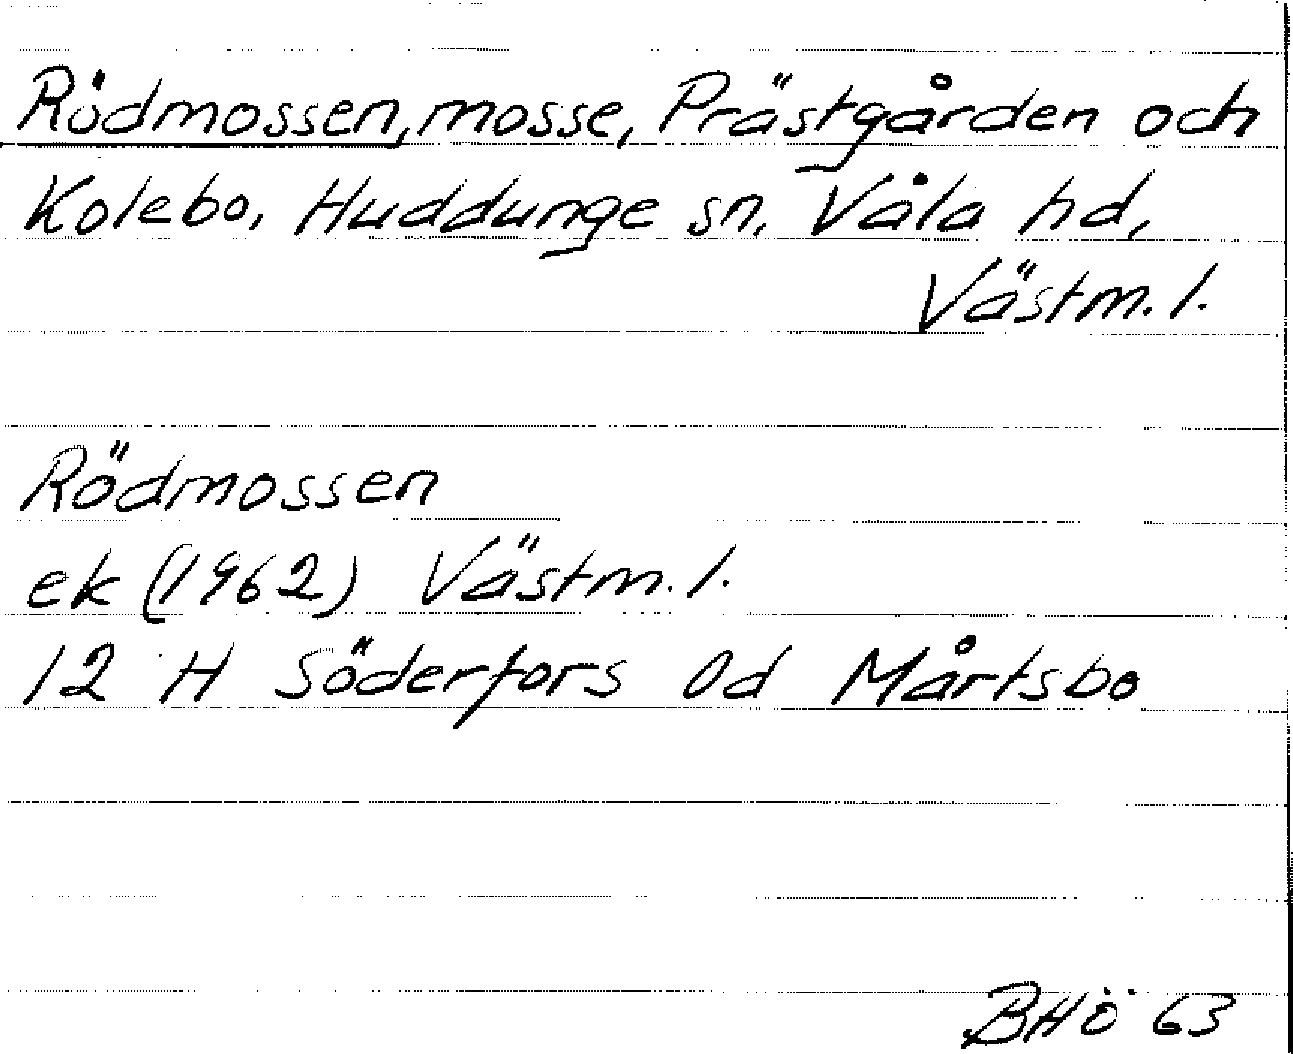 Rödmossen, mosse, Prästgården och
Kolebo, Huddunge sn, Våla hd,
Västm. l.
Rödmossen
ek (1962) Västm. l.
12 H Söderfors 0d Mårtsbo
BHÖ 63